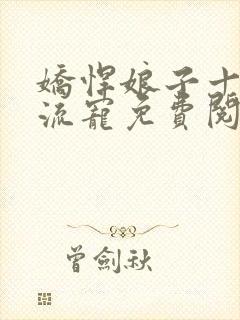 嬌悍娘子十
流寵免費閱
曾劍秋